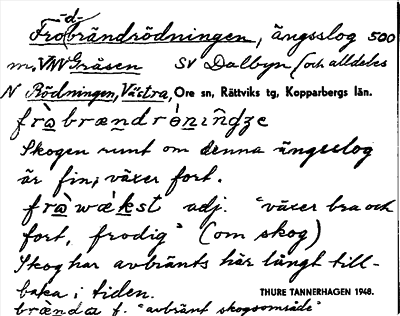 -d-
Frobrändrödningen, ängsslog 500
m. VNV Gråsen SV Dalbyn (och alldeles
N Rödningen, Västra, Ore sn, Rättviks tg, Kopparbergs län.
Skogen runt om denna ängsslog
är fin, växer fort.
adj. "växer bra och
fort, frodig" (om skog)
Skog har avbränts här långt till-
baka i tiden. THURE TANNERHAGEN 1948.
brænda f. "avbränt skogsområde"